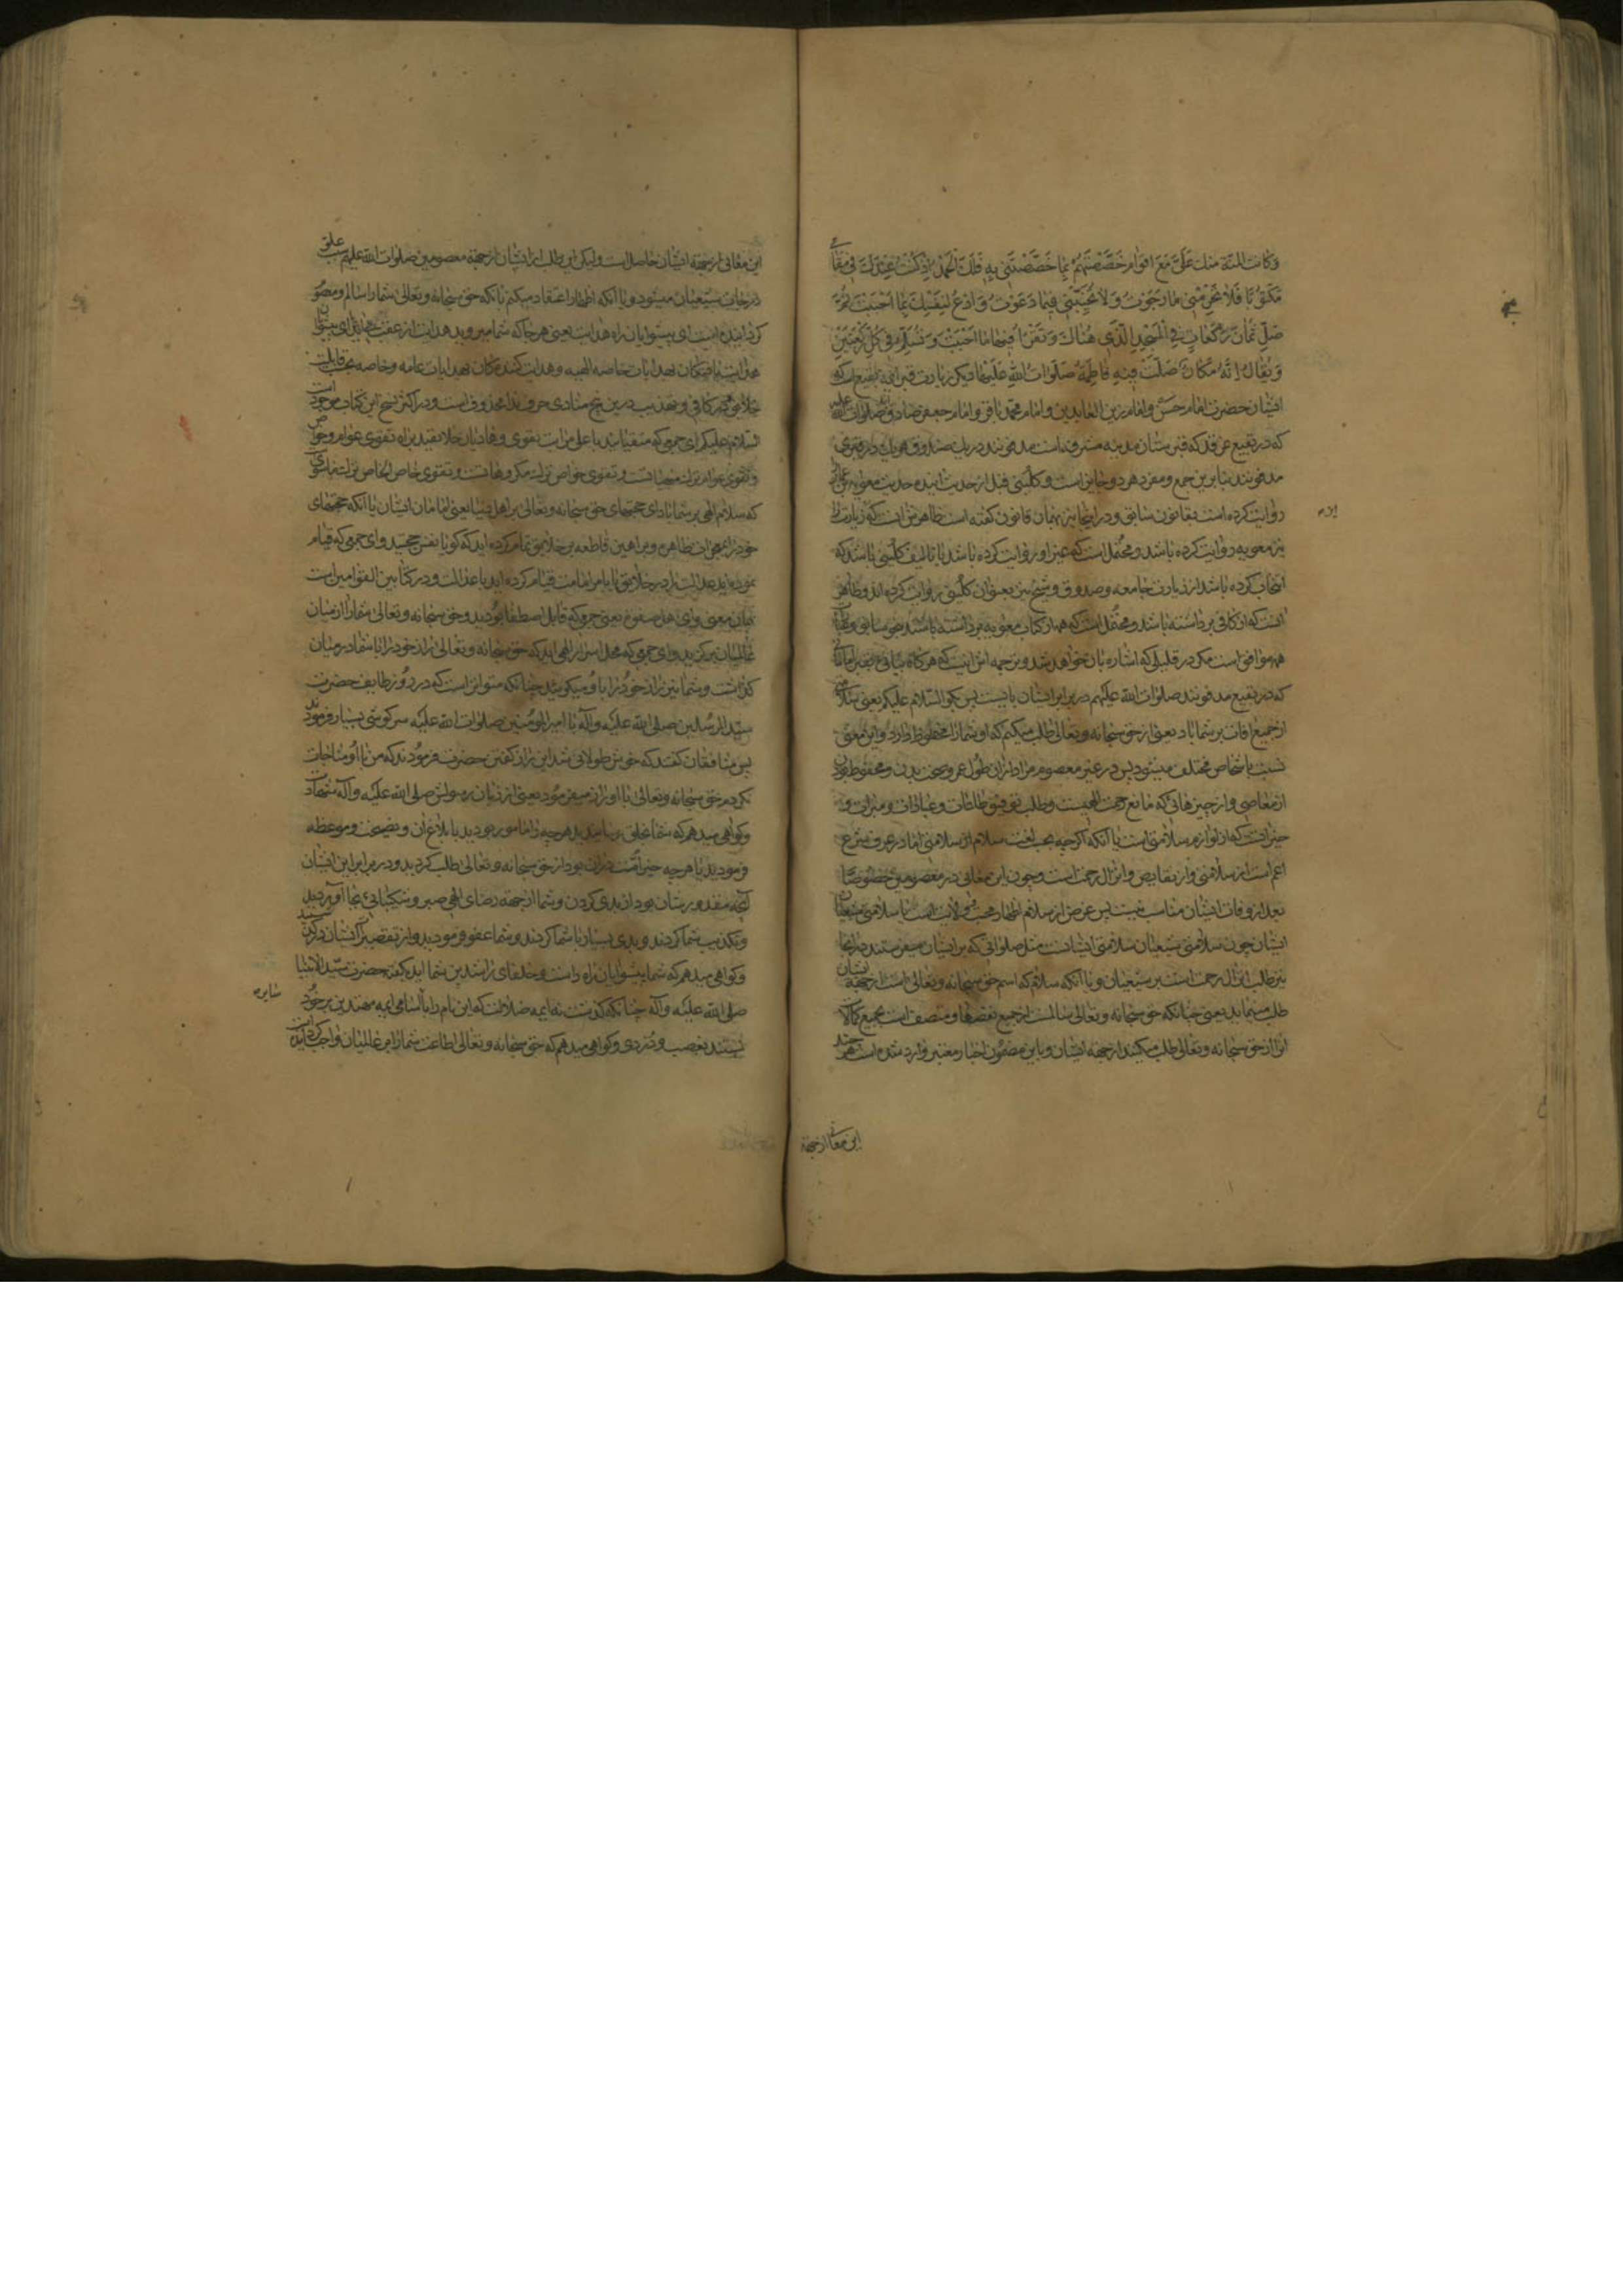 وَكَانَتِ المِنَّةُ مِنْكَ عَلَيَّ مَعَ اَقْوَامٍ خَصَصْتَهُمْ بِمَا خَصَصْتَنِي بِهِ فَلَكَ الْحَمْدُ اِذْ كُنْتُ عِنْدَكَ فِي مَقَامِي
مَكْتُوبًا فَلَا تَحْرِمْنِي مَا رَجَوْتُ وَلَا تُخَيِّبْنِي فِيمَا دَعَوْتُ وَادْعُ لِنَفْسِكَ بِمَا اَحْبَبْتَ ثُمَّ
صَلِّ ثَمَانَ رَكَعَاتٍ فِي الْمَسْجِدِ الَّذِي هُنَاكَ وَتَقْرَأُ فِيهَا مَا اَحْبَبْتَ وَتُسَلِّمُ فِي كُلِّ رَكْعَتَيْنِ
وَيُقَالُ اِنَّهُ مَكَانٌ صَلَّتْ فِيهِ فَاطِمَةُ صَلَوَاتُ اللهِ عَلَيْهَا ديكر زيارت قبر ائمه بقيع است كه
ايشان حضرت امام حسن و امام زين العابدين و امام محمد باقر و امام جعفر صادقند صلوات الله عليهم
كه در بقيع غرقد كه قبرستان مدينه مشرفه است مدفونند در يك صندوق هر يك در قبرى
مدفونند بنا برين جمع و مفرد هر دو جايز است و كلينى قبل از حديث اينده حديث معويه بن عمار
روايت كرده است بقانون سابق و در اينجا نيز بهمان قانون كفته است ظاهرش انست كه زيارت را
نيز معويه روايت كرده باشد و محتملست كه غير او روايت كرده باشد يا تاليف كلينى باشد كه
انتخاب كرده باشد از زيارت جامعه و صدوق و شيخ نيز بعنوان كلينى روايت كرده اند و ظاهر
انست كه از كافى برداشته باشند و محتملست كه همه از كتاب معويه برداشته باشند
همه موافق است مكر در قليلى كه اشاره بان خواهد شد و ترجمه اش اينست كه هر كاه بيائى بقبر امامانى
كه در بقيع مدفونند صلوات الله عليهم در برابر ايشان بايست پس بكو السلام عليكم يعنى سلامتى
از جميع افات بر شما باد يعنى از حق سبحانه و تعالى طلب ميكنم كه او شما را محفوظ دارد و اين معنى
نسبت باشخاص مختلف ميشود پس در غير معصوم مراد ازان طول عمر و صحت بدن و محفوظ بودن
از معاصى و از چيزهائى كه مانع رحمت الهيست و طلب توفيق طاعات و عبادات و مبرات و
خيرات كه از لوازم سلامتى است يا آنكه اكرچه بحسب لغت سلام از سلامتى اما در عرف شرع
اعم است از سلامتى و از نقايص و انزال رحمت است و چون اين معانى در معصومين خصوصا
بعد از وفات ايشان مناسب نيست پس غرض از سلام اظهار محبت و ولايت است يا سلامتى شيعيان
ايشان چون سلامتى شيعيان سلامتى ايشانست مثل صلواتى كه بر ايشان ميفرستند در اينجا
نيز طلب انزال رحمت است بر شيعيان و يا آنكه سلام كه اسم حق سبحانه و تعالى است از جهة ايشان
طلب مينمايد يعنى چنانكه حق سبحانه و تعالى سالمست از جميع نقصها و متصف است بجميع كمالات
انرا از حق سبحانه و تعالى طلب ميكنيد از جهة ايشان و باين مضمون اخبار معتبر وارد شده است هر چند
اين معانى از جهة
اين معانى از جهة ايشان حاصل است و ليكن اين طلب از ايشان از جهة معصومين صلوات الله عليهم سبب علو
درجات شيعيان ميشود و يا آنكه اظهار اعتقاد ميكنم بانكه حق سبحانه و تعالى شما را سالم و مصون
كردانيده است اى پيشوايان راه هدايت يعنى هر جا كه شما ميرويد هدايت از عقب شما
هدايت يافتكان بهدايات خاصه الهيه و هدايت كنندكان بهدايات عامه و خاصه بحسب قابليت
خلايق و در كافى و تهذيب درين پنج منادى حرف ندا محذوف است و در اكثر نسخ اين كتاب موجود است
السلام عليكم اى جمعى كه متقيانيد با على مراتب تقوى و هاديان خلايقيد براه تقوى عوام و خواص
و تقوى عوام ترك منهياتست و تقوى خواص ترك مكروهات و تقوى خاص الخاص ترك ما سوى
كه سلام الهى بر شما باد اى حجتهاى حق سبحانه و تعالى بر اهل دنيا يعنى امامان ايشان يا آنكه حجتهاى
خود را بمعجزات ظاهره و براهين قاطعه بر خلايق تمام كرده ايد كه كويا نفس حجتيد و اى جمعى كه قيام
نموده ايد بعدالت در خلايق يا بامر امامت قيام كرده ايد با عدالت و در كتابين القوامين است
بهمان معنى و اى اهل صفوت يعنى جمعى كه قابل اصطفا بوديد و حق سبحانه و تعالى شما را از ميان
عالميان بر كزيد و اى جمعى كه محل اسرار الهى ايد كه حق سبحانه و تعالى راز خود را با شما در ميان
كذاشت و شما نيز راز خود را باو ميكوئيد چنانكه متواتر است كه در روز طايف حضرت
سيد المرسلين صلى الله عليه و آله با امير المؤمنين صلوات الله عليه سركوشى بسيار فرمودند
پس منافقان كفتند كه خوش طولانى شد اين راز كفتن حضرت فرمودند كه من با او مناجات
نكردم حق سبحانه و تعالى با او راز ميفرمود يعنى از زبان رسولش صلى الله عليه و آله شهادت
و كواهى ميدهم كه شما بخلق رسانيديد هر چه را مامور بوديد بابلاغ ان و نصيحت و موعظه
فرموديد يا هر چه خير امت در ان بود از حق سبحانه و تعالى طلب كرديد و در برابر اين ايشان
آنچه مقدورشان بود از بدى كردن و شما از جهة رضاى الهى صبر و شكيبائى بجا آورديد
و تكذيب شما كردند و بدى بسيار با شما كردند و شما عفو فرموديد و از تقصيرات ايشان در كذشتيد
و كواهى ميدهم كه شما پيشوايان راه راست و خلفاى راشدين شما ايد بكفته حضرت سيد الانبيا
صلى الله عليه و آله چنانكه كذشت نه ايمه ضلالت كه اين نام را با سامى ايمه مهتدين بر خود
بستند بغصب و دزدى و كواهى ميدهم كه حق سبحانه و تعالى اطاعت شما را بر عالميان واجب كردانيده است